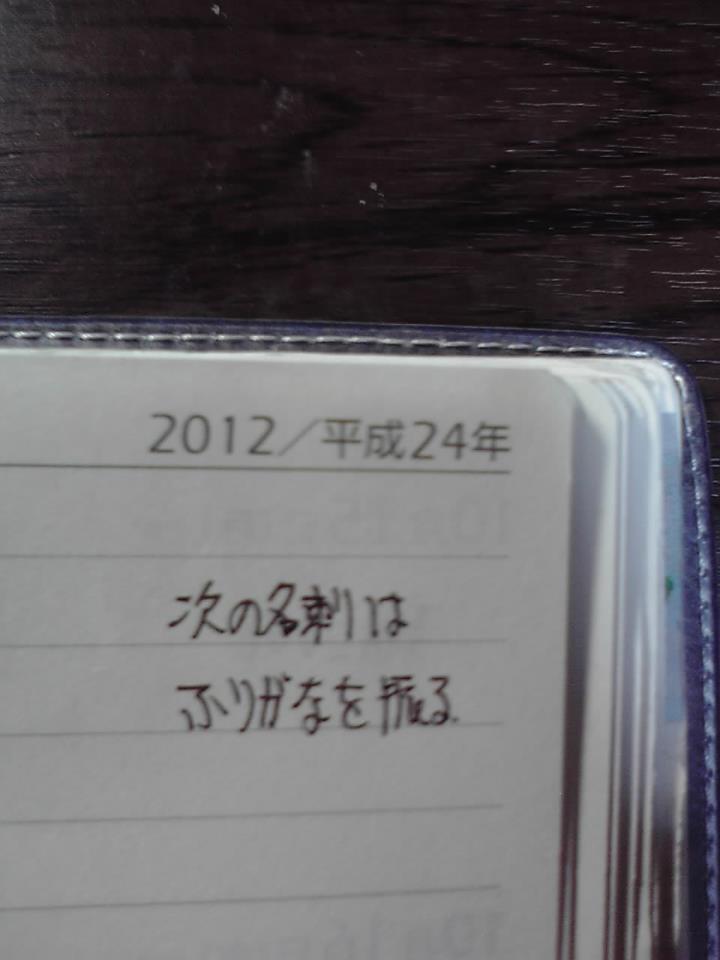 2012／平成24年
次の名刺は
ふりがなを振る